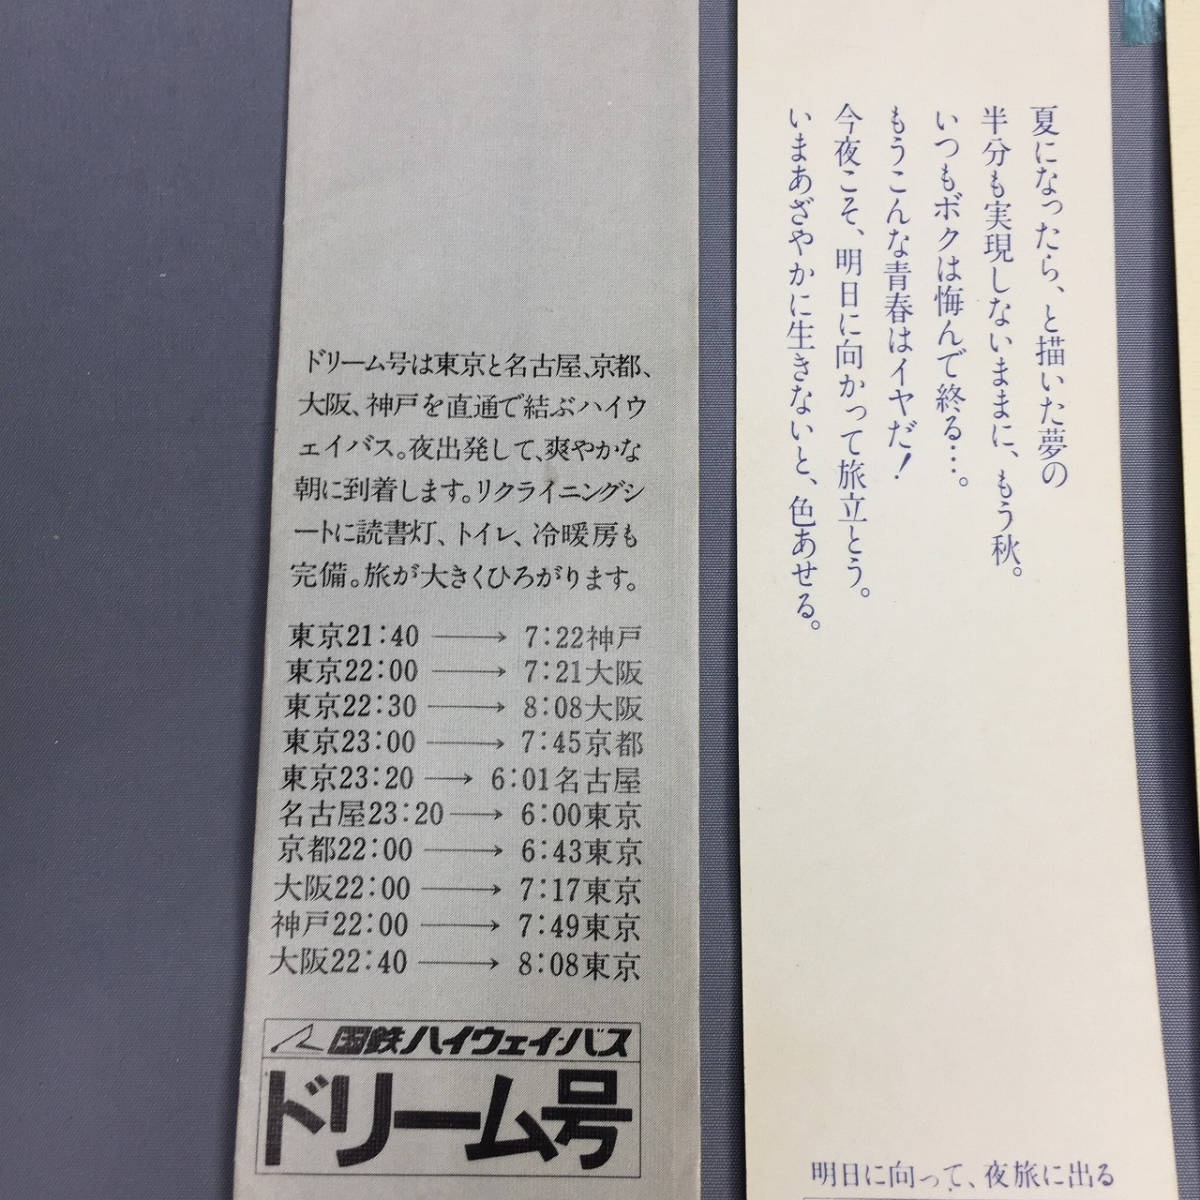 ドリーム号は東京と名古屋、京都、
大阪、神戸を直通で結ぶハイウ
ェイバス。夜出発して、爽やかな
朝に到着します。リクライニングシ
ートに読書灯、トイレ、冷暖房も
完備。旅が大きくひろがります。
東京21:40 ⟶ 7:22神戸
東京22:00 ⟶ 7:21大阪
東京22:30 ⟶ 8:08大阪
東京23:00 ⟶ 7:45京都
東京23:20 ⟶ 6:01名古屋
名古屋23:20 ⟶ 6:00東京
京都22:00 ⟶ 6:43東京
大阪22:00 ⟶ 7:17東京
神戸22:00 ⟶ 7:49東京
大阪22:40 ⟶ 8:08東京
国鉄ハイウェイ・バス
ドリーム号
夏になったら、と描いた夢の
半分も実現しないままに、もう秋。
いつもボクは悔んで終る…。
もうこんな青春はイヤだ!
今夜こそ、明日に向かって旅立とう。
いまあざやかに生きないと、色あせる。
明日に向って、夜旅に出る